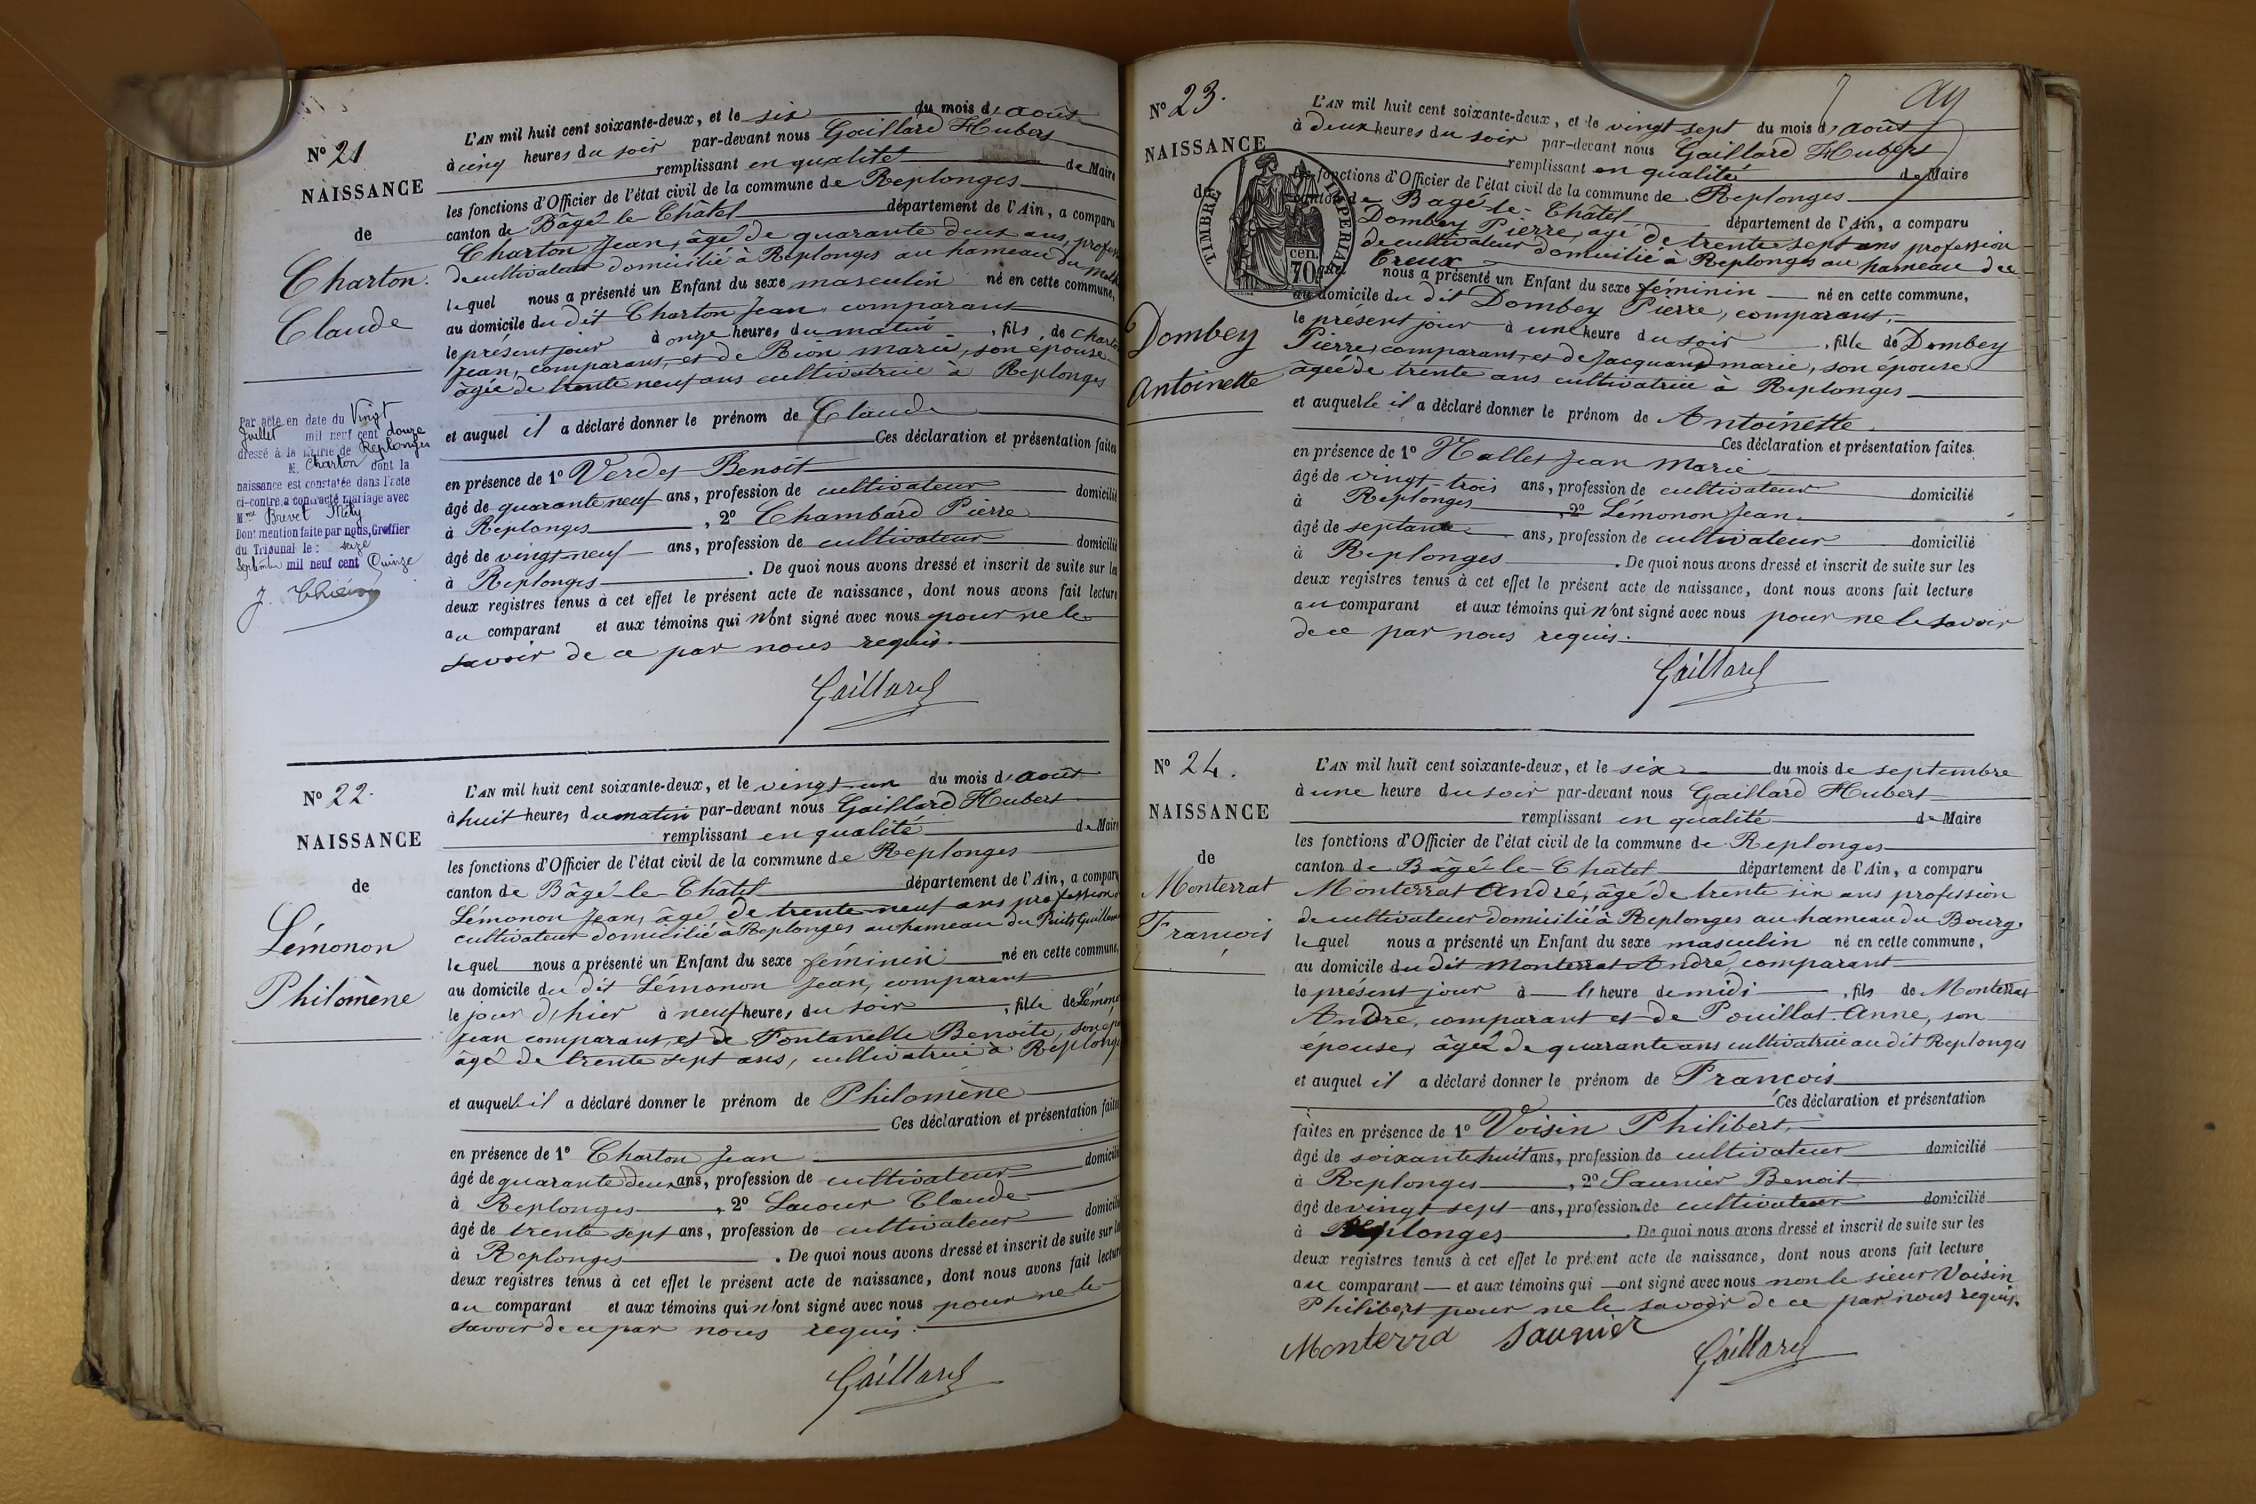 N° 21
NAISSANCE
de
Charton
Claude
L'AN mil huit cent soixante-deux, et le six du mois d'août
à cinq heures du soir par-devant nous Gaillard Hubert
remplissant en qualité de Maire
les fonctions d'Officier de l'état civil de la commune de Replonges
canton de Bâgé-le-Châtel département de l'Ain, a comparu
Charton Jean, âgé de quarante deux ans, profession
de cultivateur domicilié à Replonges au hameau du
lequel nous a présenté un Enfant du sexe masculin né en cette commune,
au domicile du dit Charton Jean, comparant
le présent jour à onze heures du matin, fils de Charton
Jean, comparant, et de Rion Marie, son épouse
âgée de trente neuf ans cultivatrice à Replonges
et auquel il a déclaré donner le prénom de Claude
Ces déclaration et présentation faites
en présence de 1° Verdet Benoit
âgé de quarante neuf ans, profession de cultivateur domicilié
à Replonges, 2° Chambard Pierre
âgé de vingt-neuf ans, profession de cultivateur domicilié
à Replonges. De quoi nous avons dressé et inscrit de suite sur les
deux registres tenus à cet effet le présent acte de naissance, dont nous avons fait lecture
au comparant et aux témoins qui n'ont signé avec nous pour ne le
savoir de ce par nous requis.
Gaillard
Par acte en date du Vingt
Juillet mil neuf cent douze
dressé à la Mairie de Replonges
M. Charton dont la
naissance est constatée dans l'acte
ci-contre a contracté mariage avec
Mme Brevet Mély
Dont mention faite par nous, Greffier
du Tribunal le: seize
Septembre mil neuf cent Quinze
N° 22.
NAISSANCE
de
Lémonon
Philomène
L'AN mil huit cent soixante-deux, et le vingt un du mois d'août
à huit heures du matin par-devant nous Gaillard Hubert
remplissant en qualité de Maire
les fonctions d'Officier de l'état civil de la commune de Replonges
canton de Bâgé-le-Châtel département de l'Ain, a comparu
Lémonon Jean, âgé de trente neuf ans profession
cultivateur domicilié à Replonges au hameau du Puits Guillemin
lequel nous a présenté un Enfant du sexe féminin né en cette commune,
au domicile du dit Lémonon Jean, comparant
le jour d'hier à neuf heures du soir, fille de Lémonon
Jean comparant, et de Fontanelle Benoite, son épouse
âgé de trente sept ans, cultivatrice à Replonges
et auquelle il a déclaré donner le prénom de Philomène
Ces déclaration et présentation faites
en présence de 1° Charton Jean
âgé de quarante deux ans, profession de cultivateur domicilié
à Replonges, 2° Lacour Claude
âgé de trente sept ans, profession de cultivateur domicilié
à Replonges. De quoi nous avons dressé et inscrit de suite sur les
deux registres tenus à cet effet le présent acte de naissance, dont nous avons fait lecture
au comparant et aux témoins qui n'ont signé avec nous pour ne le
savoir de ce par nous requis.
Gaillard
N° 23.
NAISSANCE
de
TIMBRE IMPÉRIAL
70 cen.
Dombey
Antoinette
L'AN mil huit cent soixante-deux, et le vingt sept du mois d'août
à deux heures du soir par-devant nous Gaillard Hubert
remplissant en qualité de Maire
les fonctions d'Officier de l'état civil de la commune de Replonges
canton de Bagé-le-Châtel département de l'Ain, a comparu
Dombey Pierre, âgé de trente sept ans profession
de cultivateur domicilié à Replonges au hameau de
Creux
nous a présenté un Enfant du sexe féminin né en cette commune,
au domicile du dit Dombey Pierre, comparant,
le présent jour à une heure du soir, fille de Dombey
Pierre, comparant, et de Jacquand marie, son épouse
âgée de trente ans cultivatrice à Replonges
et auquelle il a déclaré donner le prénom de Antoinette.
Ces déclaration et présentation faites.
en présence de 1° Hallet Jean Marie
âgé de vingt-trois ans, profession de cultivateur domicilié
à Replonges, 2° Lémonon Jean
âgé de septante ans, profession de cultivateur domicilié
à Replonges. De quoi nous avons dressé et inscrit de suite sur les
deux registres tenus à cet effet le présent acte de naissance, dont nous avons fait lecture
au comparant et aux témoins qui n'ont signé avec nous pour ne le savoir
de ce par nous requis.
Gaillard
N° 24.
NAISSANCE
de
Monterrat
Francois
L'AN mil huit cent soixante-deux, et le six du mois de septembre
à une heure du soir par-devant nous Gaillard Hubert
remplissant en qualité de Maire
les fonctions d'Officier de l'état civil de la commune de Replonges
canton de Bâgé-le-Châtel département de l'Ain, a comparu
Monterrat André, âgé de trente six ans profession
de cultivateur domicilié à Replonges au hameau du Bourg.
lequel nous a présenté un Enfant du sexe masculin né en cette commune,
au domicile du dit Monterrat André, comparant
le présent jour à l'heure de midi, fils de Monterrat
André, comparant et de Pouillat Anne, son
épouse, âgée de quarante ans cultivatrice au dit Replonges
et auquel il a déclaré donner le prénom de Francois
Ces déclaration et présentation
faites en présence de 1° Voisin Philibert,
âgé de soixante huit ans, profession de cultivateur domicilié
à Replonges, 2° Saunier Benoit
âgé de vingt sept ans, profession de cultivateur domicilié
à Replonges. De quoi nous avons dressé et inscrit de suite sur les
deux registres tenus à cet effet le présent acte de naissance, dont nous avons fait lecture
au comparant et aux témoins qui ont signé avec nous non le sieur Voisin
Philibert pour ne le savoir de ce par nous requis.
Monterra Saunier Gaillard